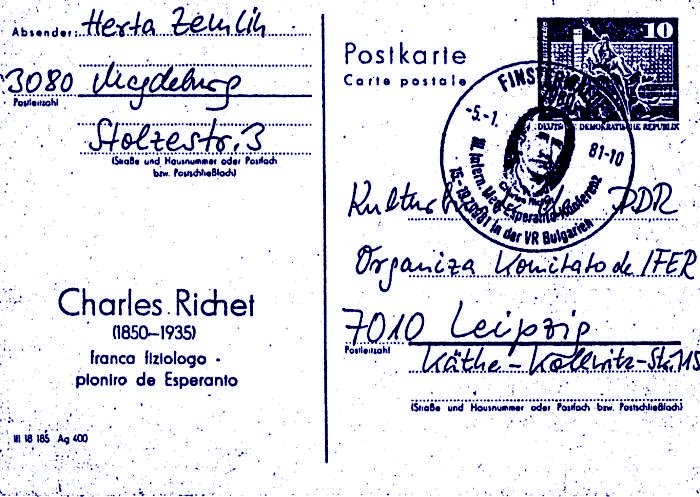 Absender: Herta Zemlin
3080 Magdeburg
Postleitzahl
Stolzestr. 3
(Straße und Hausnummer oder Postfach
bzw. Postschließfach)
Charles Richet
(1850–1935)
franca fiziologo -
pioniro de Esperanto
III 18 185 Ag 400
Postkarte
Carte postale
10
DEUTSCHE DEMOKRATISCHE REPUBLIK
-5.-1.
81-10
in der VR Bulgarien
DDR
Organiza Komitato de IFER
7010 Leipzig
Postleitzahl
Käthe-Kollwitz-Str. 115
(Straße und Hausnummer oder Postfach bzw. Postschließfach)